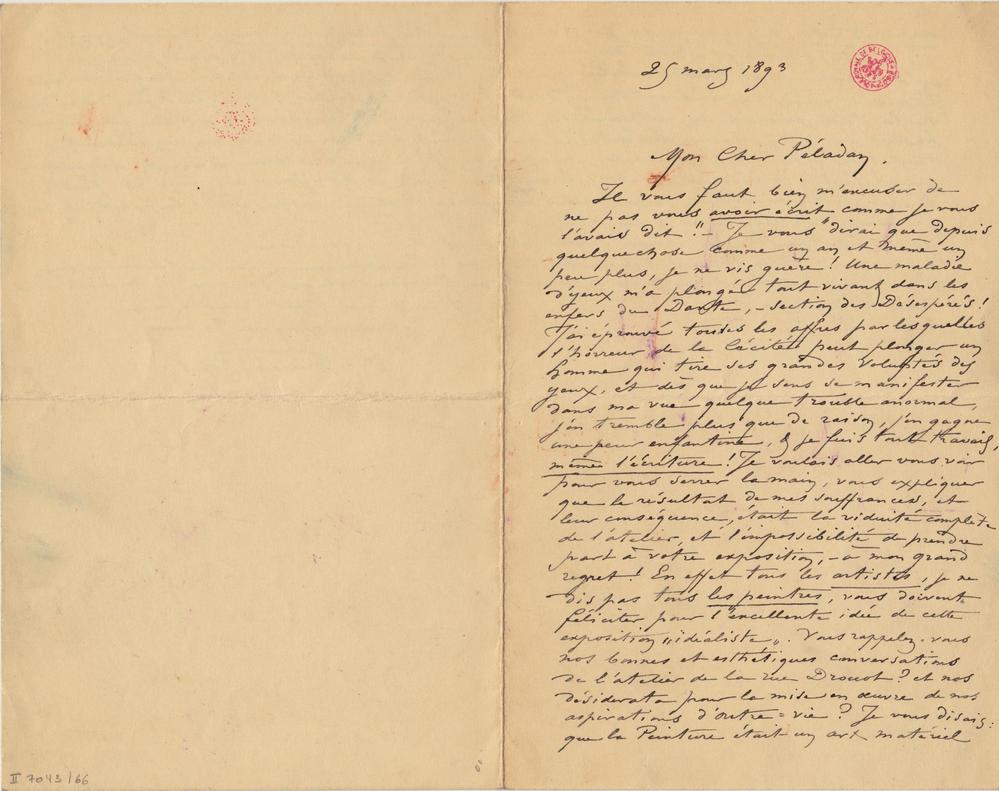 25 mars 1893
Mon Cher Péladan,
Il vous faut bien m'excuser de
ne pas vous avoir écrit comme je vous
l'avais dit ! – Je vous dirai que depuis
quelquechose comme un an et même un
peu plus, je ne vis guère ! Une maladie
d'yeux m'a plongé tout vivant dans les
enfers du Dante, – section des Désespérés !
J'ai éprouvé toutes les affres par lesquelles
l'horreur de la Cécité peut plonger un
homme qui tire ses grandes voluptés des
yeux, et dès que je sens se manifester
dans ma vue quelque trouble anormal,
j'en tremble plus que de raison, j'en gagne
une peur enfantine, & je fuis tout travail,
même l'écriture ! Je voulais aller vous voir
pour vous serrer la main, vous expliquer
que le résultat de mes souffrances, et
leur conséquence, était la viduité complète
de l'atelier, et l'impossibilité de prendre
part à votre exposition, – à mon grand
regret ! En effet tous les artistes, je ne
dis pas tous les peintres, vous doivent
féliciter pour l'excellente idée de cette
exposition „idéaliste„. Vous rappelez-vous
nos bonnes et esthétiques conversations
de l'atelier de la rue Drouot ? et nos
désiderata pour la mise en œuvre de nos
aspirations d'outre=vie ? Je vous disais :
que la Peinture était un art matériel
II 7043/66